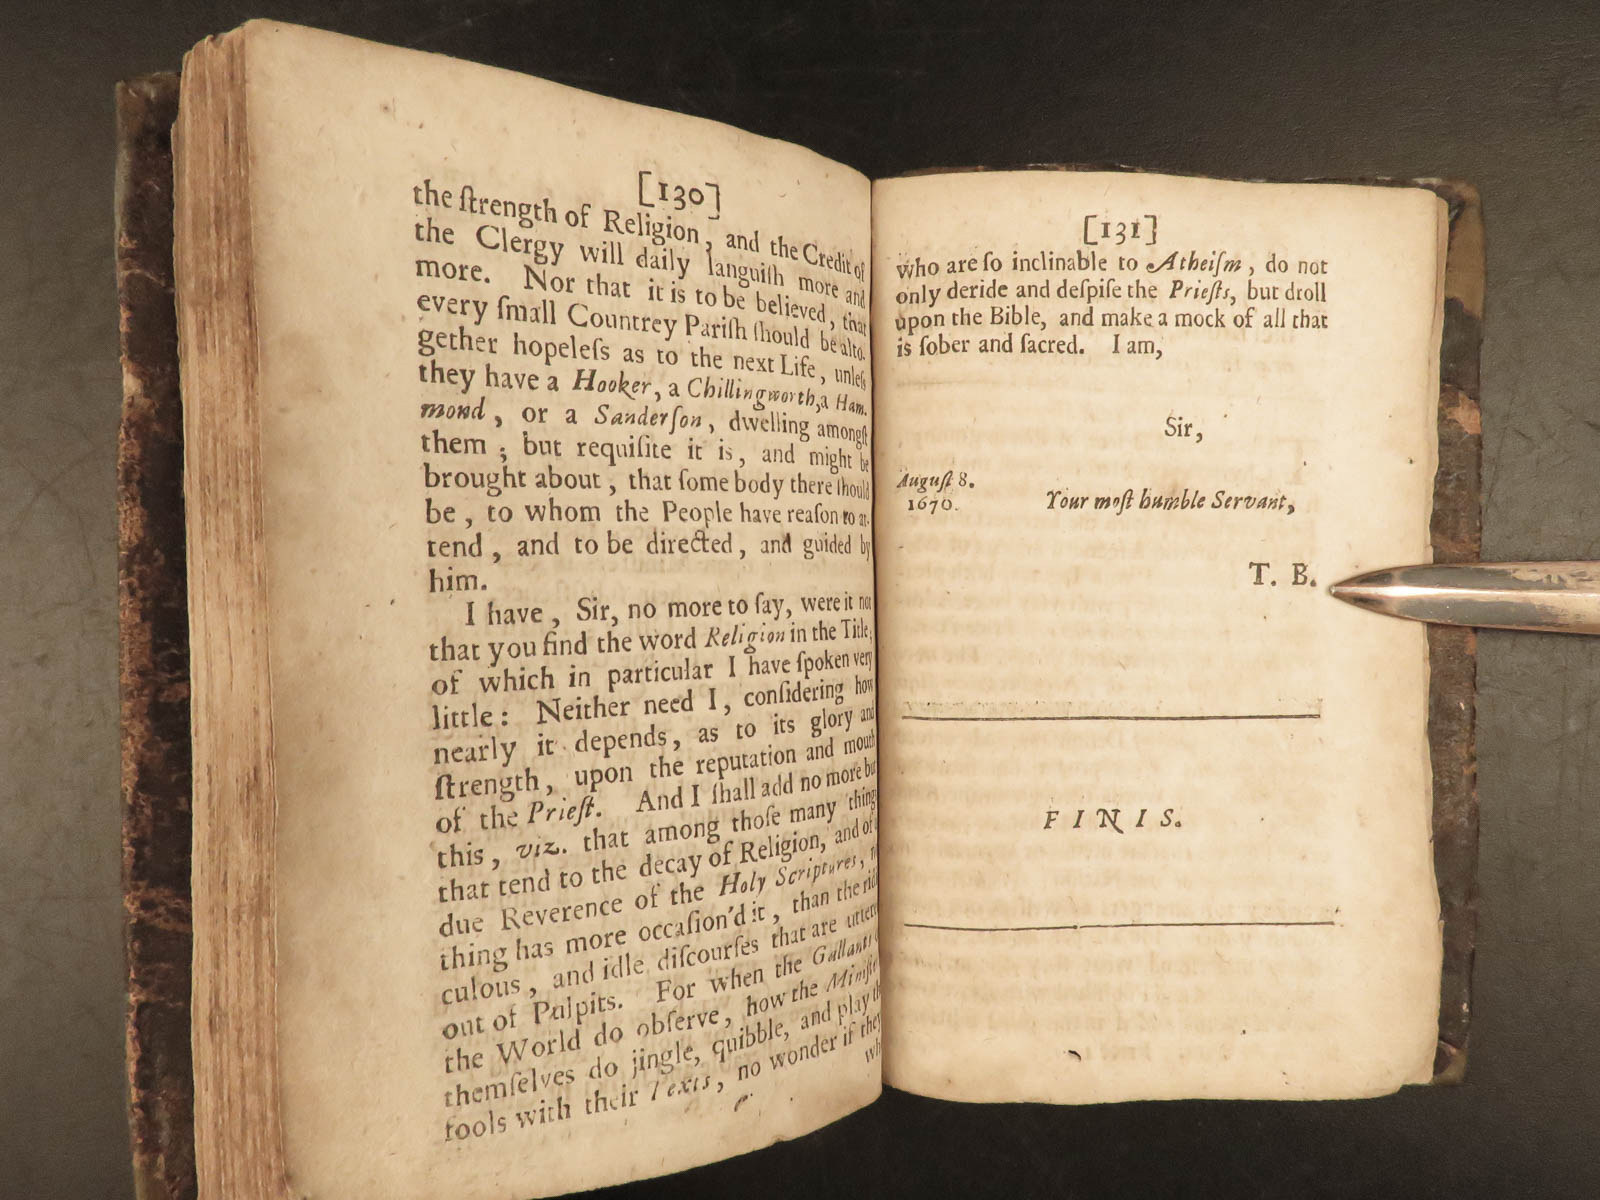 [130]
the ſtrength of Religion, and the Credit of
the Clergy will daily languiſh more and
more. Nor that it is to be believed, that
every ſmall Countrey Pariſh ſhould be alto-
gether hopeleſs as to the next Life, unleſs
they have a Hooker, a Chillingworth, a Ham-
mond, or a Sanderſon, dwelling amongſt
them; but requiſite it is, and might be
brought about, that ſome body there ſhould
be, to whom the People have reaſon to at-
tend, and to be directed, and guided by
him.
I have, Sir, no more to ſay, were it not
that you find the word Religion in the Title,
of which in particular I have ſpoken very
little: Neither need I, conſidering how
nearly it depends, as to its glory and
ſtrength, upon the reputation and mouth
of the Prieſt. And I ſhall add no more but
this, viz. that among thoſe many things
that tend to the decay of Religion, and of
due Reverence of the Holy Scriptures,
thing has more occaſion'd it, than the ridi
culous, and idle diſcourſes that are utter
out of Pulpits. For when the Gallants
the World do obſerve, how the Miniſte
themſelves do jingle, quibble, and play th
fools with their Texts, no wonder if they
wh
[131]
who are ſo inclinable to Atheiſm, do not
only deride and deſpiſe the Prieſts, but droll
upon the Bible, and make a mock of all that
is ſober and ſacred. I am,
Sir,
Auguſt 8.
1670.
Your moſt humble Servant,
T. B.
FINIS.